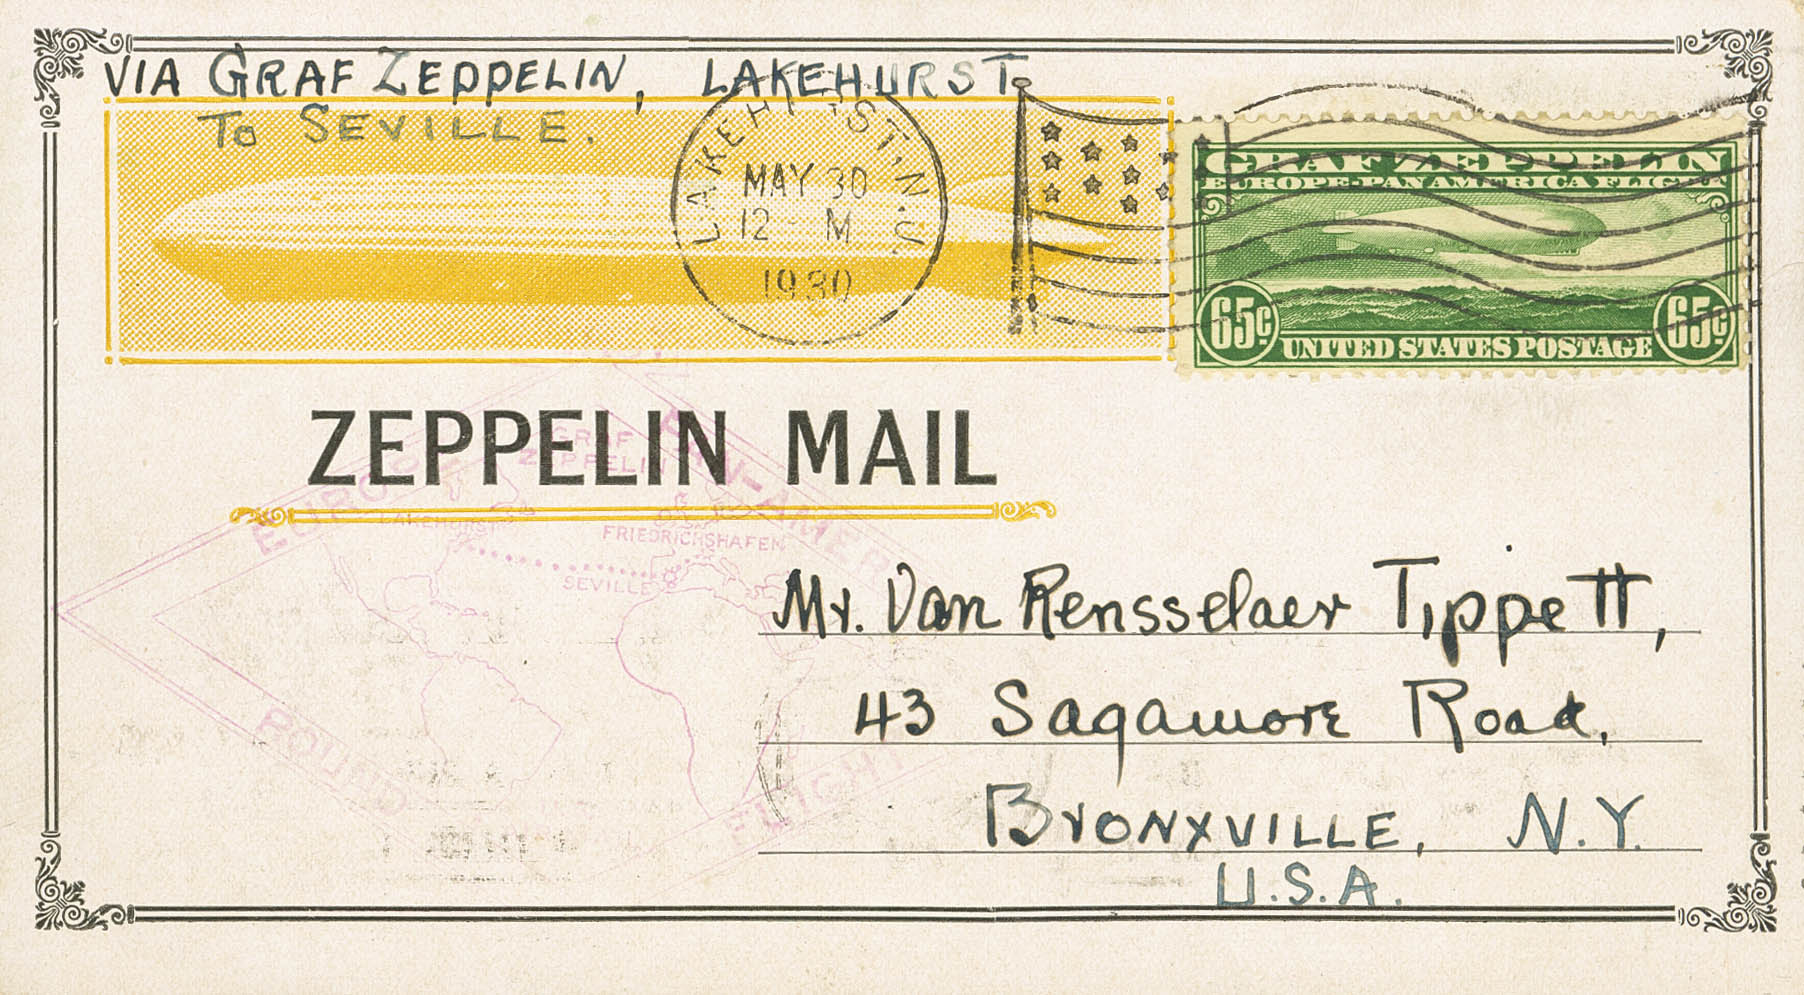 VIA GRAF ZEPPELIN, LAKEHURST
TO SEVILLE.
LAKEHURST, N.J.
MAY 30
12 - M
1930
GRAF ZEPPELIN
EUROPE-PAN AMERICA FLIGHT
65¢ 65¢
UNITED STATES POSTAGE
ZEPPELIN MAIL
EUROPE PAN-AMER
GRAF
ZEPPELIN
LAKEHURST
FRIEDRICHSHAFEN
SEVILLE
ROUND FLIGHT
Mr. Van Rensselaer Tippett,
43 Sagamore Road,
BRONXVILLE, N.Y.
U.S.A.